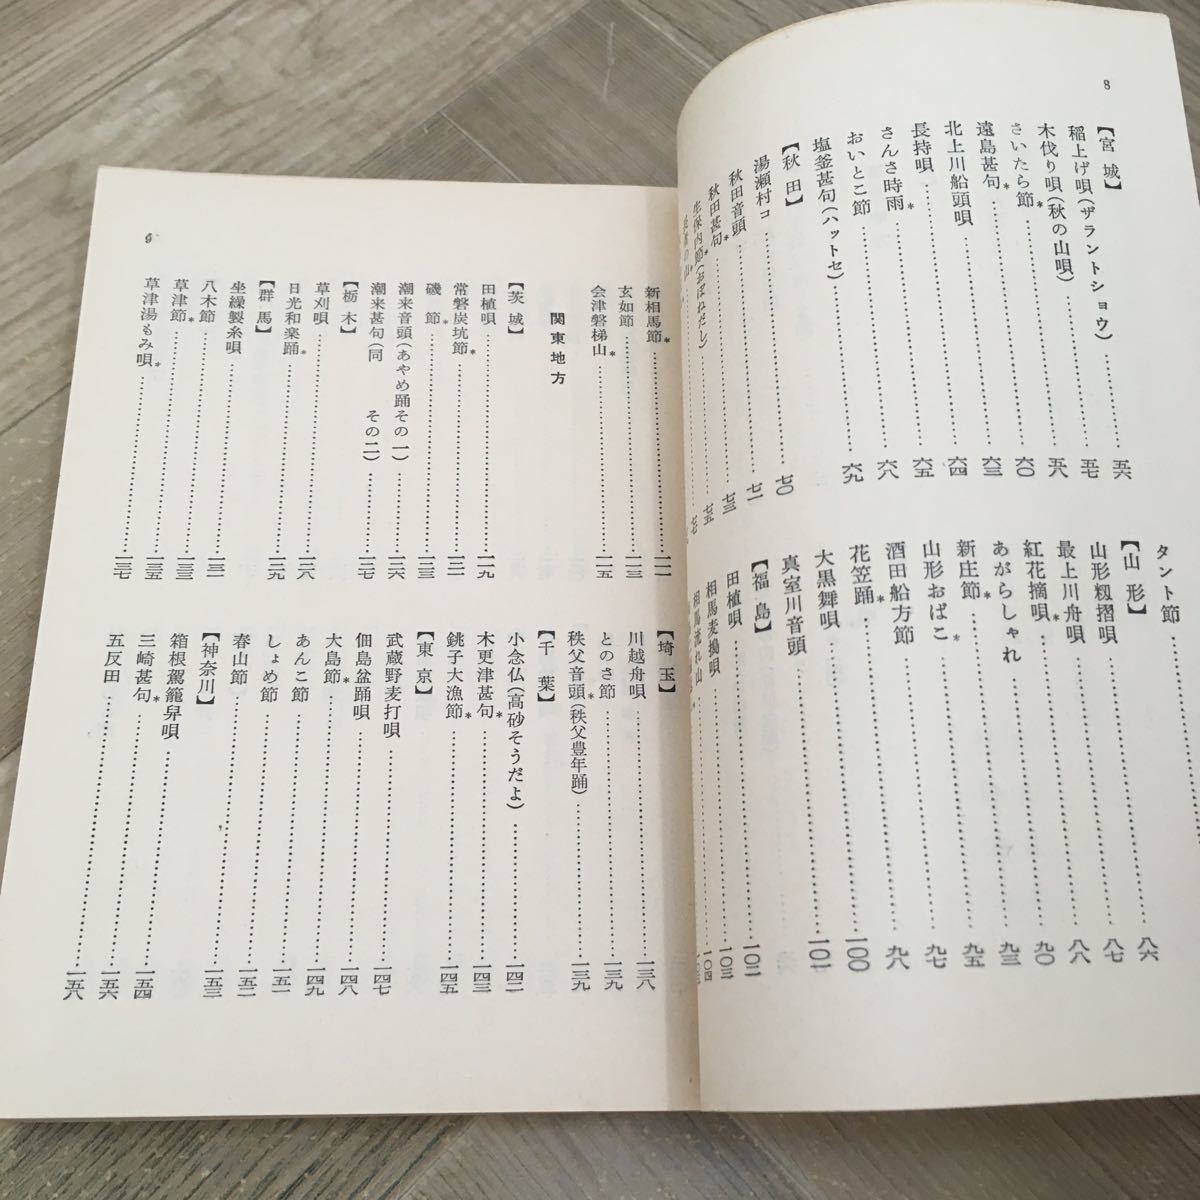 8
【宮城】
稲上げ唄(ザラントショウ)……五六
木伐り唄(秋の山唄)……五七
さいたら節*……五八
遠島甚句*……六〇
北上川船頭唄……六三
長持唄……六四
さんさ時雨*……六五
おいとこ節……六八
塩釜甚句(ハットセ)……六九
【秋田】
湯瀬村コ……七〇
秋田音頭……七一
秋田甚句*……七三
生保内節*(おばねだし)……七五
タント節……八六
【山形】
山形籾摺唄……八七
最上川舟唄……八八
紅花摘唄*……九〇
あがらしゃれ……九三
新庄節*……九五
山形おばこ*……九七
酒田船方節……九八
花笠踊*……一〇〇
大黒舞唄……一〇一
真室川音頭
【福島】
田植唄……一〇二
相馬麦搗唄……一〇三
相馬流れ山……一〇四
9
新相馬節*……一一一
玄如節……一一三
会津磐梯山*……一一五
関東地方
【茨城】
田植唄……一一九
常磐炭坑節*……一二一
磯節*……一二三
潮来音頭(あやめ踊その一)……一二六
潮来甚句(同 その二)……一二七
【栃木】
草刈唄……一二八
日光和楽踊*……一二九
【群馬】
坐繰製糸唄……一三一
八木節……一三三
草津節*……一三五
草津湯もみ唄*……一三七
【埼玉】
川越舟唄……一三八
とのさ節……一三九
秩父音頭*(秩父豊年踊)……一三九
【千葉】
小念仏(高砂そうだよ)……一四二
木更津甚句*……一四三
銚子大漁節*……一四五
【東京】
武蔵野麦打唄……一四七
佃島盆踊唄……一四八
大島節*……一四九
あんこ節……一五一
しょめ節……一五二
春山節……一五三
【神奈川】
箱根駕籠舁唄……一五四
三崎甚句*……一五六
五反田……一五八